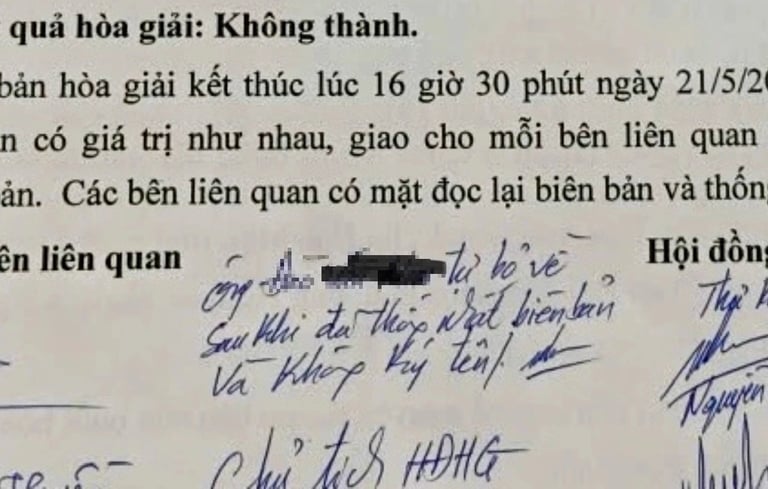 quả hòa giải: Không thành.
bản hòa giải kết thúc lúc 16 giờ 30 phút ngày 21/5/20
n có giá trị như nhau, giao cho mỗi bên liên quan
ản. Các bên liên quan có mặt đọc lại biên bản và thống
ên liên quan
Hội đồng
Ông tự bỏ về
sau khi đã thống nhất biên bản
và không ký tên/.
Thư k
Nguyễn
Chủ tịch HĐHG